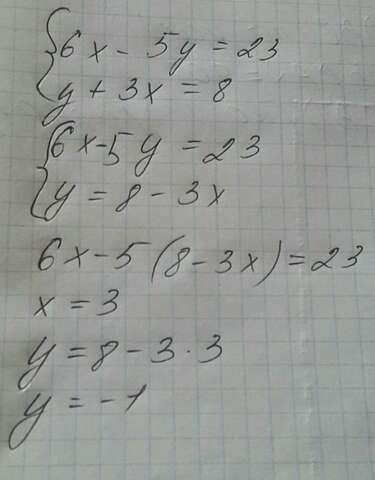 6x - 5y = 23
y + 3x = 8
6x - 5y = 23
y = 8 - 3x
6x - 5(8 - 3x) = 23
x = 3
y = 8 - 3 · 3
y = -1